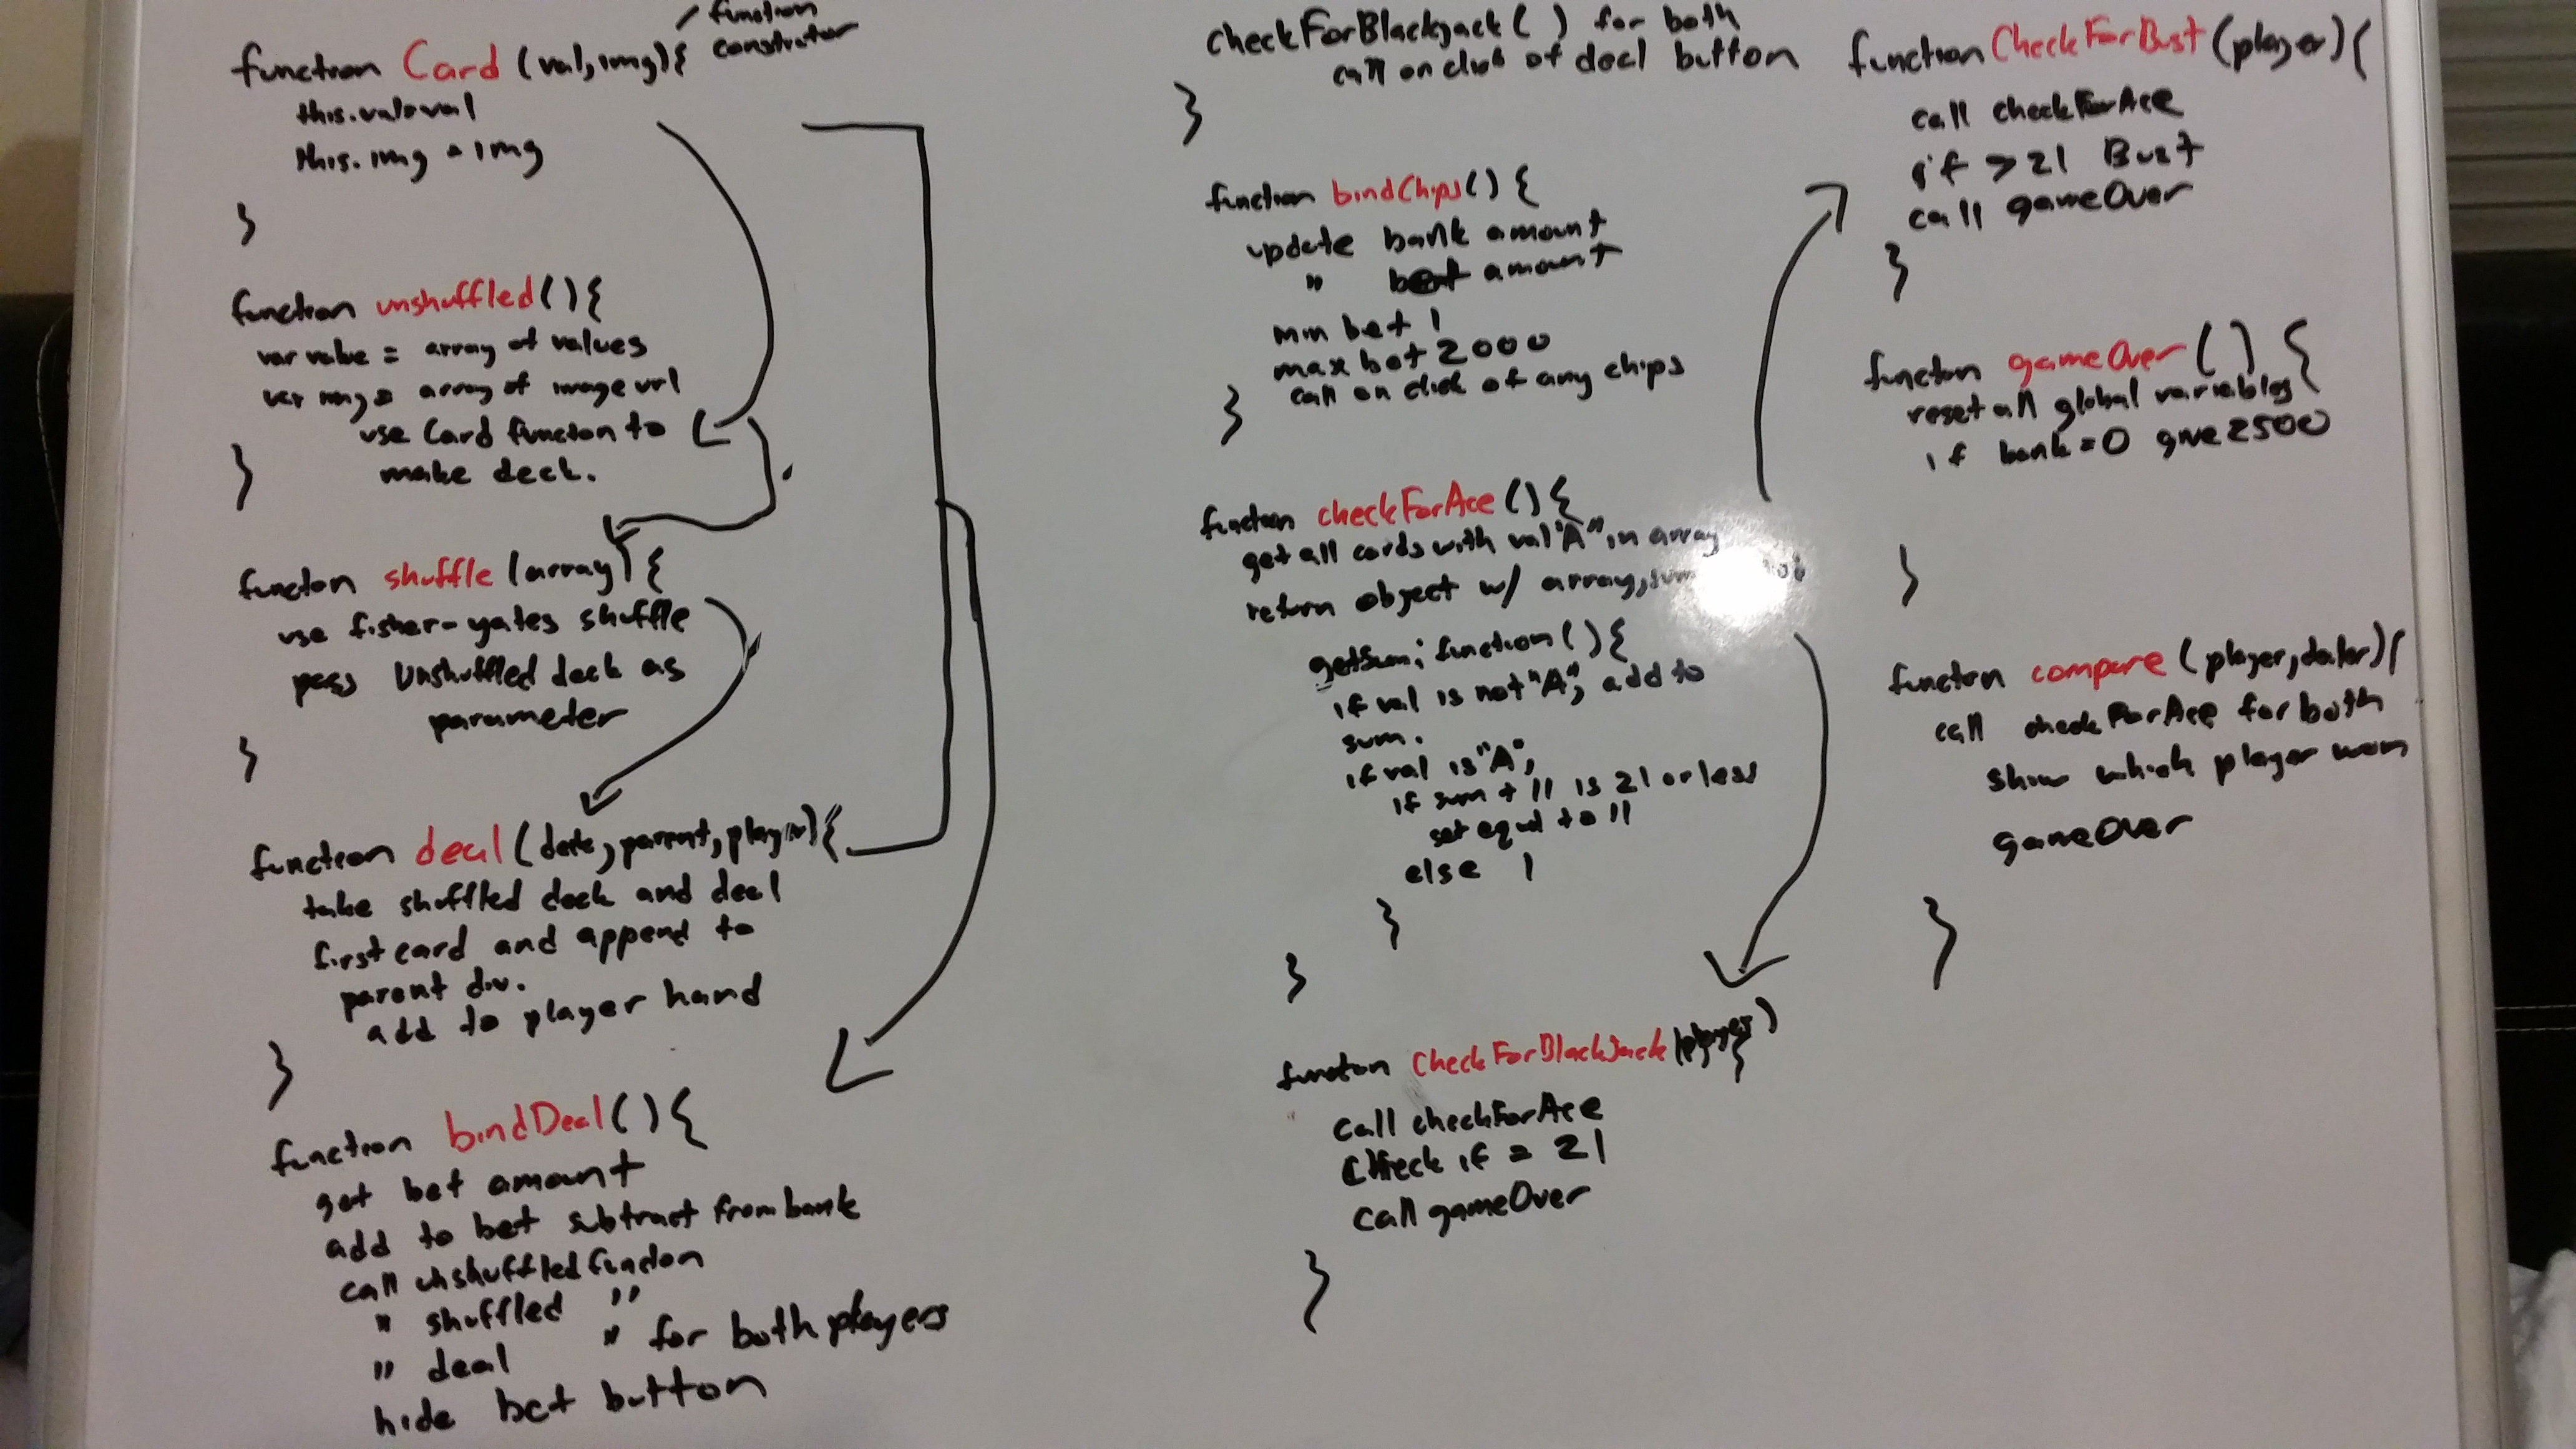 function
constrator
function Card (val,img){
this.val=val
this.img = img
}
function unshuffled(){
var value = array of values
var img = array of image url
use Card functon to
make deck.
}
functon shuffle (array) {
use fisher-yates shuffle
pass Unshuffled deck as
parameter
}
function deal (deck, parent, player){
take shuffled deck and deal
first card and append to
parent div.
add to player hand
}
function bindDeal(){
get bet amount
add to bet subtract from bank
call unshuffled function
" shuffled "
" deal " for both players
hide bet button
checkForBlackjack( ) for both
call on click of deal button
}
function bindChips() {
update bank amount
" bet amount
min bet 1
max bet 2000
call on click of any chips
}
function checkForAce (){
get all cards with val "A" in array
return object w/ array, sum
getSum: function(){
if val is not "A", add to
sum.
if val is "A",
if sum + 11 is 21 or less
set equal to 11
else 1
}
}
functon CheckForBlackJack (player)
{
Call checkForAce
Check if = 21
Call gameOver
}
function CheckForBust (player){
call checkForAce
if > 21 Bust
call gameOver
}
functon gameOver () {
reset all global variables
if bank = 0 give 2500
}
functon compare (player, dealer){
call checkForAce for both
show which player won
gameOver
}